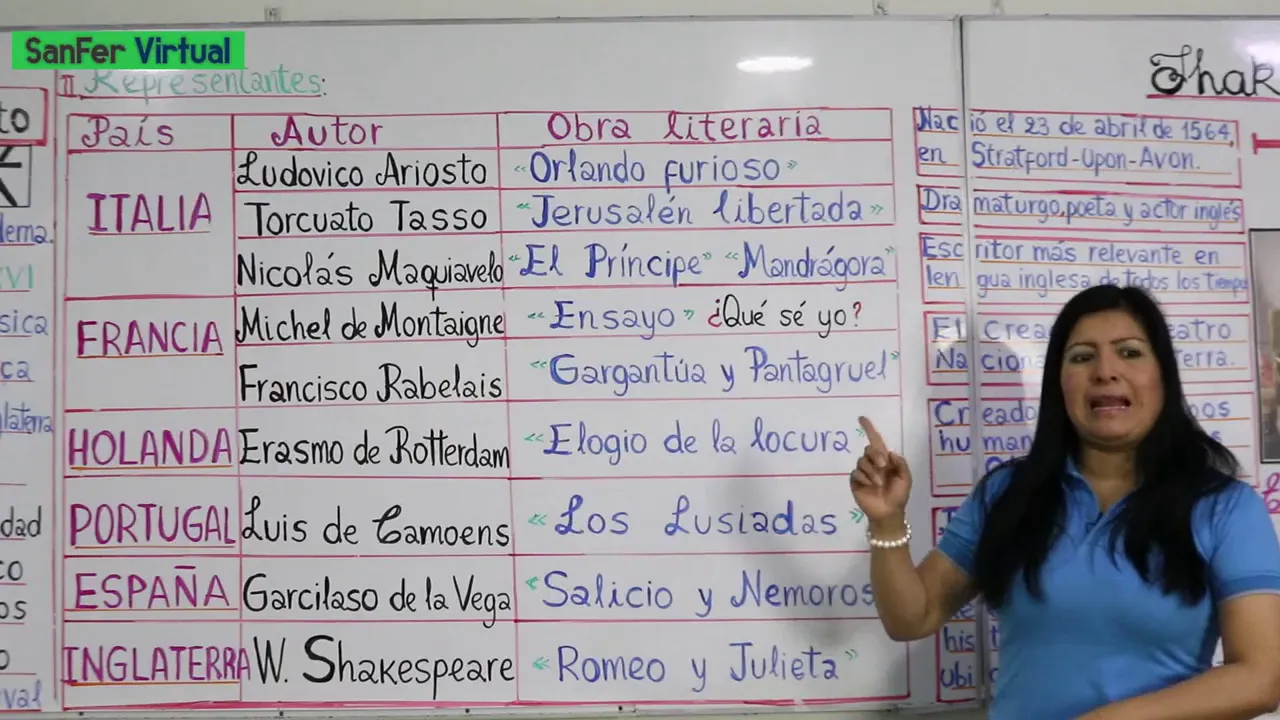 SanFer Virtual
II Representantes:
País Autor Obra literaria
ITALIA
Ludovico Ariosto «Orlando furioso»
Torcuato Tasso «Jerusalén libertada»
Nicolás Maquiavelo «El Príncipe» «Mandrágora»
FRANCIA
Michel de Montaigne «Ensayo» ¿Qué sé yo?
Francisco Rabelais «Gargantúa y Pantagruel»
HOLANDA Erasmo de Rotterdam «Elogio de la locura»
PORTUGAL Luis de Camoens «Los Lusiadas»
ESPAÑA Garcilaso de la Vega «Salicio y Nemoros
INGLATERRA W. Shakespeare «Romeo y Julieta»
Shak
Nació el 23 de abril de 1564,
en Stratford-Upon-Avon.
Dramaturgo, poeta y actor inglés
Escritor más relevante en
lengua inglesa de todos los tiempo
El Crea eatro
Naciona terra.
Creado
human
his
ubi
to
dema.
XVI
sica
ca
glaterra
dad
co
os
o
val